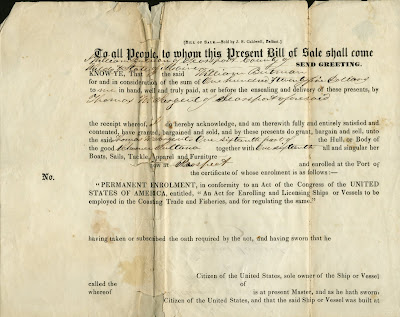 [BILL OF SALE.—Sold by J. S. Caldwell, Belfast.]
To all People, to whom this Present Bill of Sale shall come
William of Searsport County of
SEND GREETING.
KNOW YE, That I the said William
for and in consideration of the sum of One hundred Twenty five Dollars
to me, in hand, well and truly paid, at or before the ensealing and delivery of these presents, by
Thomas M of Searsport aforesaid
the receipt whereof, I do hereby acknowledge, and am therewith fully and entirely satisfied and
contented, have granted, bargained and sold, and by these presents do grant, bargain and sell, unto
the said One sixteenth part of the Hull, or Body of
the good Schooner together with One sixteenth all and singular her
Boats, Sails, Tackle, Apparel and Furniture
at Prospect and enrolled at the Port of
the certificate of whose enrolment is as follows:—
No.
"PERMANENT ENROLMENT, in conformity to an Act of the Congress of the UNITED
STATES OF AMERICA, entitled, "An Act for Enrolling and Licensing Ships or Vessels to
be employed in the Coasting Trade and Fisheries, and for regulating the same."
having taken or subscribed the oath required by the act, and having sworn that he
Citizen of the United States, sole owner of the Ship or Vessel
called the of
whereof is at present Master, and as he hath sworn,
Citizen of the United States, and that the said Ship or Vessel was built at